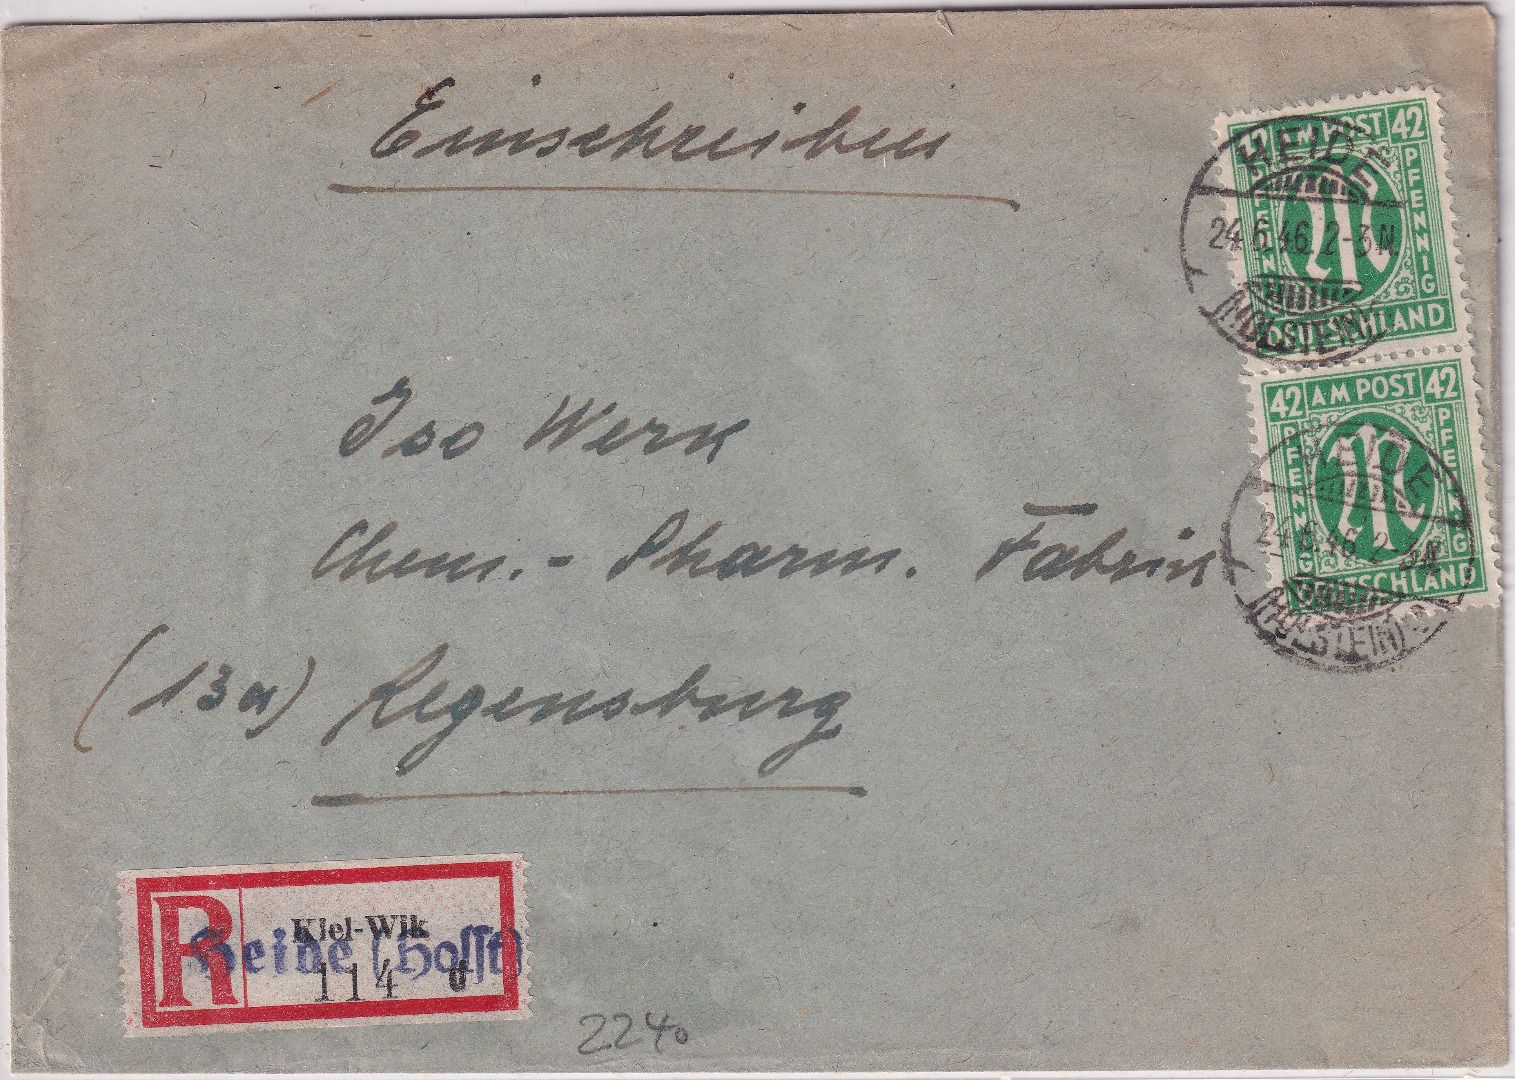 Einschreiben
42 AM POST 42
PFENNIG PFENNIG
DEUTSCHLAND
HEIDE
24.6.46. 2-3 N.
(HOLSTEIN)
42 AM POST 42
PFENNIG PFENNIG
DEUTSCHLAND
HEIDE
24.6.46. 2-3 N.
(HOLSTEIN)
Iso Werk
Chem.- Pharm. Fabrik
(13a) Regensburg
R
Kiel-Wik
Heide (Holst)
114 d
2240